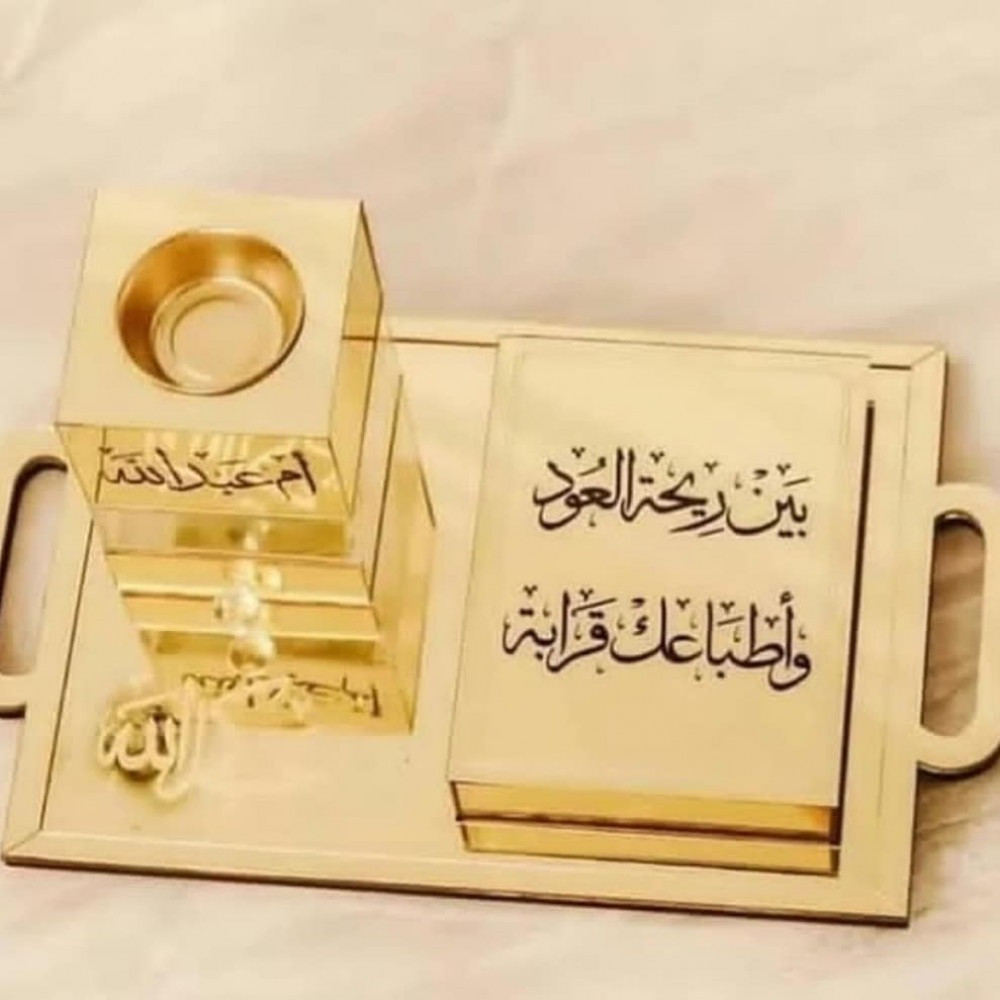 أم عبدالله
بَيْن رِيحَة العُود
وأطبَاعك قَرَابة
الله